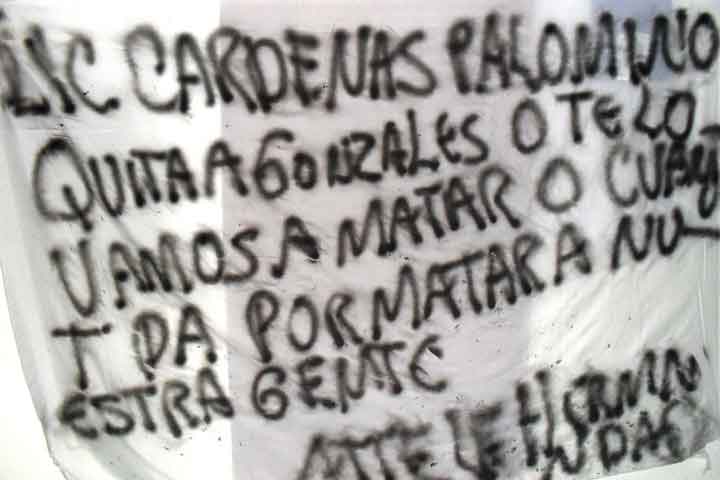 LIC CARDENAS PALOMINO
QUITA A GONZALES O TE LO
VAMOS A MATAR O CUAN
TI DA POR MATAR A NU-
ESTRA GENTE
ATTE LE HERMN
DAD